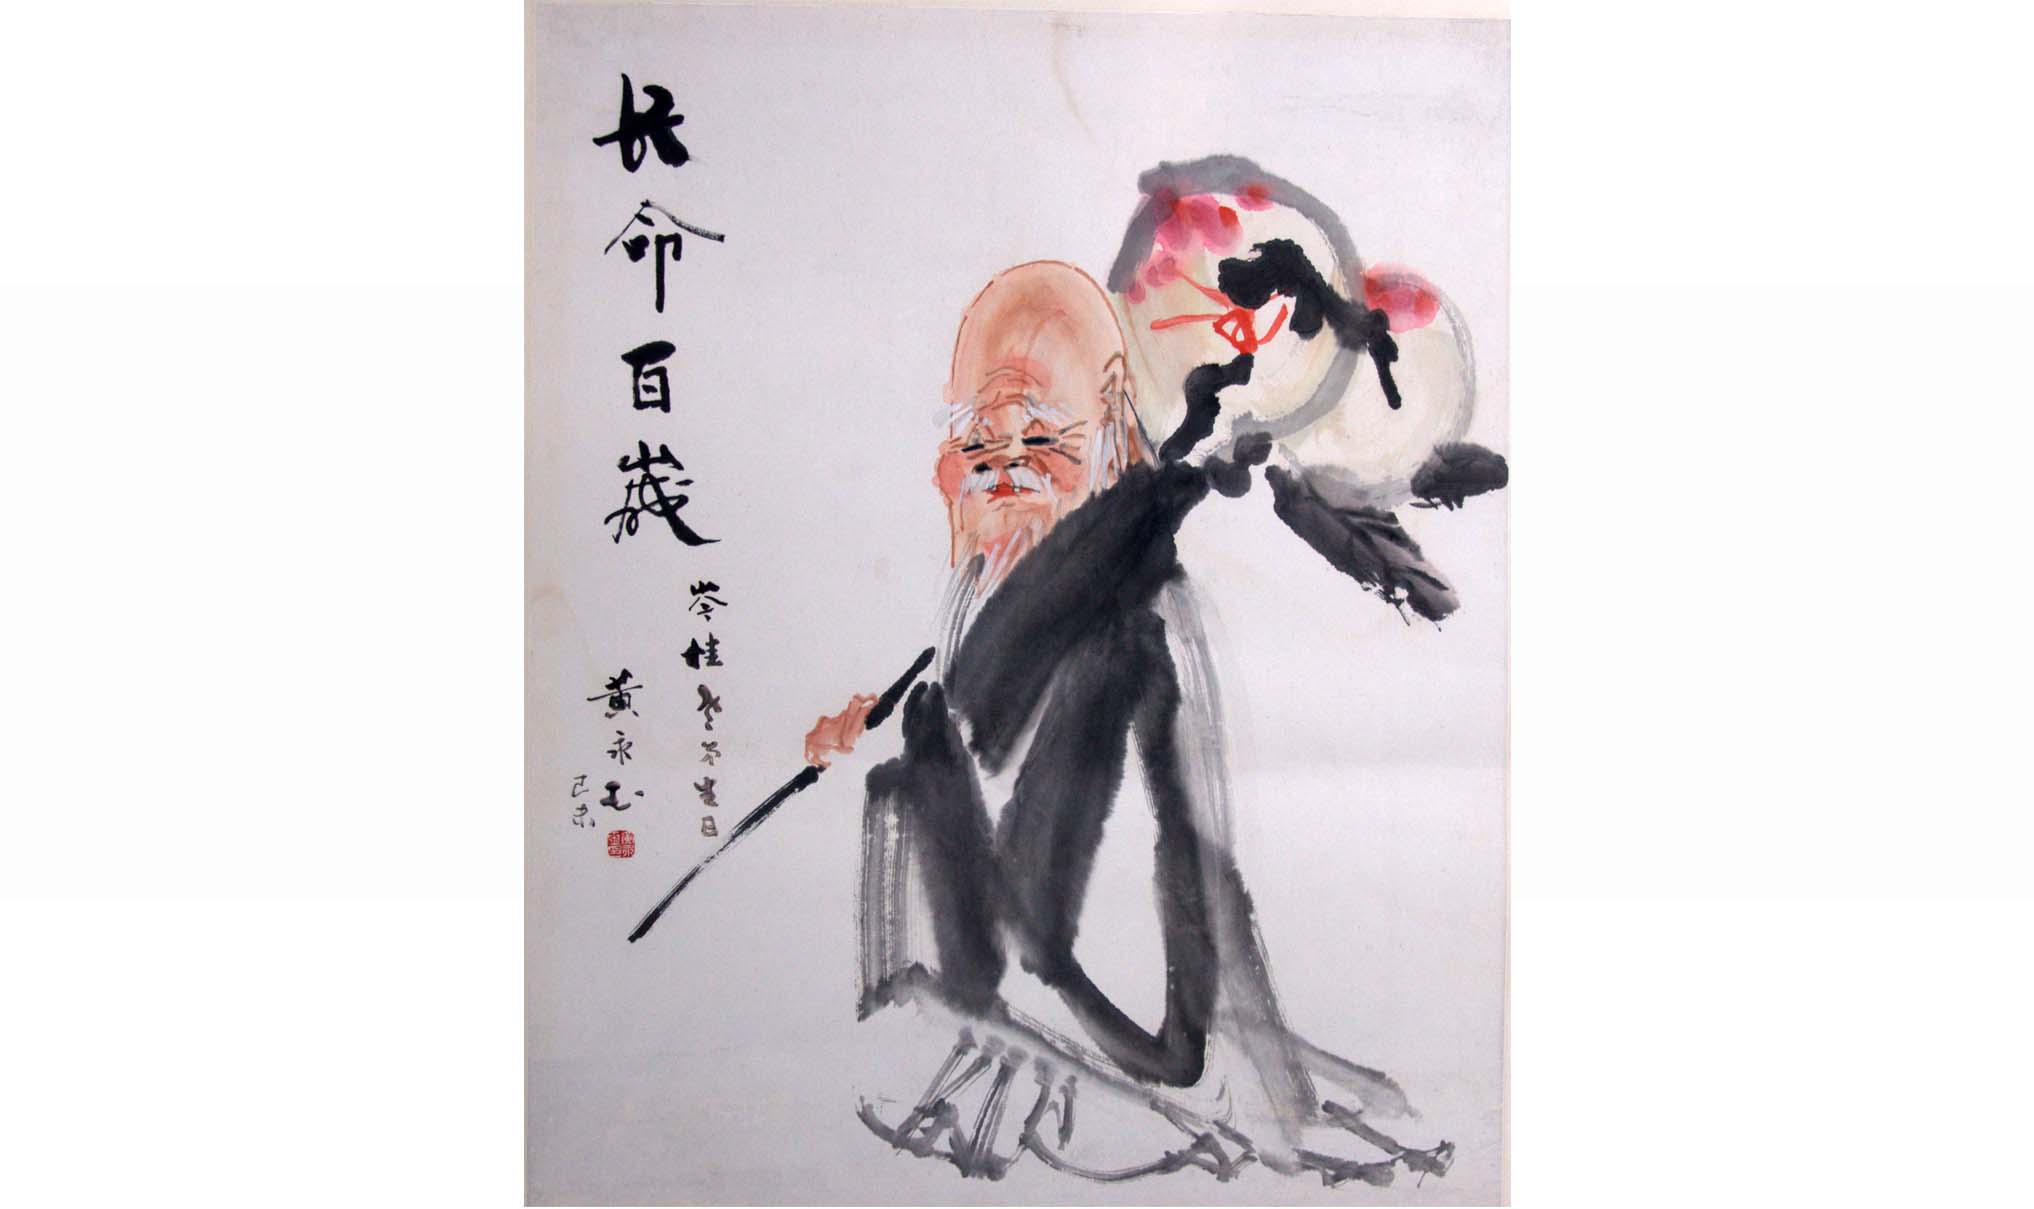 長命百歲
岑桂老爷生日
黄永玉
己未